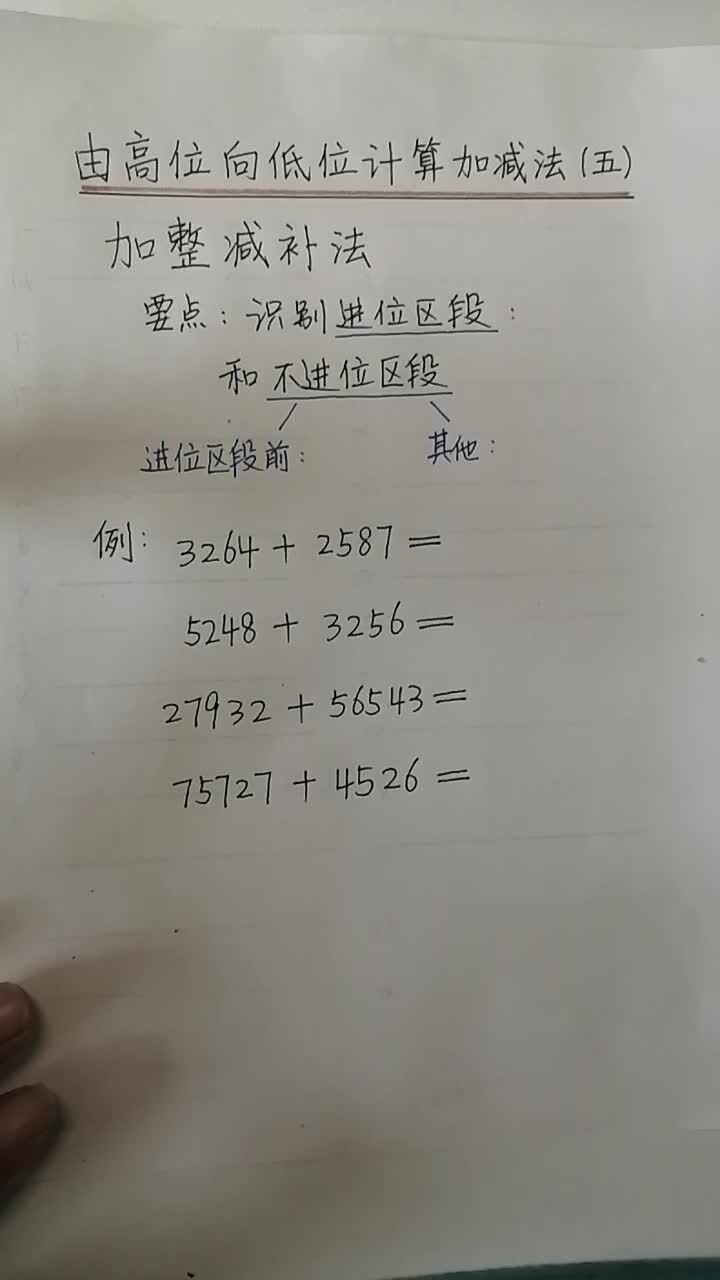 由高位向低位计算加减法(五)
加整减补法
要点:识别进位区段:
和不进位区段
进位区段前: 其他:
例: 3264 + 2587 =
5248 + 3256 =
27932 + 56543 =
75727 + 4526 =